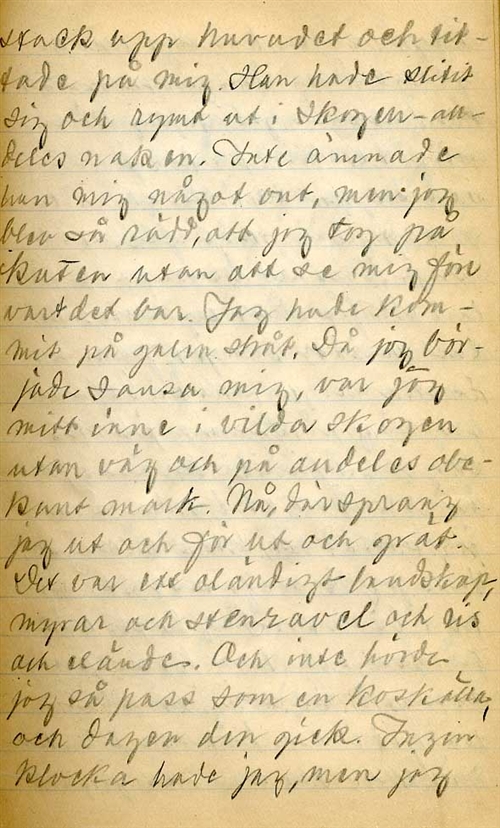 stack upp huvudet och tit-
tade på mig. Han hade slitit
sig och rymt ut i skogen - all-
deles naken. Inte ämnade
han mig något ont, men jog
blev så rädd, att jog tog på
kuten utan att se mig före
vart det bar. Jag hade kom-
mit på galen stråt. Då jog bör-
jade sansa mig, var jog
mitt inne i vilda skogen
utan väg och på andeles obe-
kant mark. Nå, där sprang
jag ut och för ut och grät.
Det var ett oländigt landskap,
myrar och stenravel och ris
och elände. Och inte hörde
jog så pass som en koskälla,
och dagen den gick. Ingen
klocka hade jag, men jag